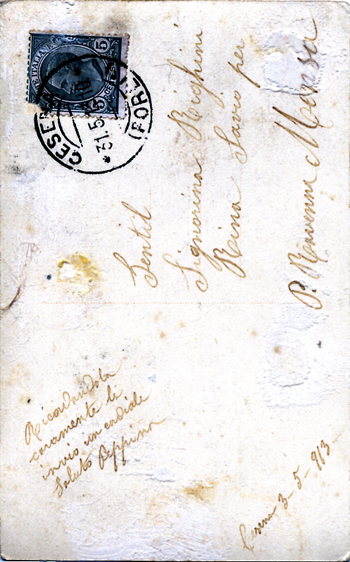 ITALIANE
5
CESE
31.5
(FORLÌ
Gentil
Signorina Righini
Rina Savio per
P. Ravenna Mensa
Ricordandola
caramente le
invio un cordiale
Saluto Peppina
3-5-913